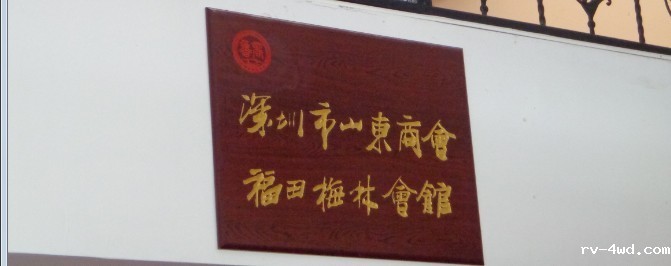 深圳市山東商會
福田梅林會館
rv-4wd.com